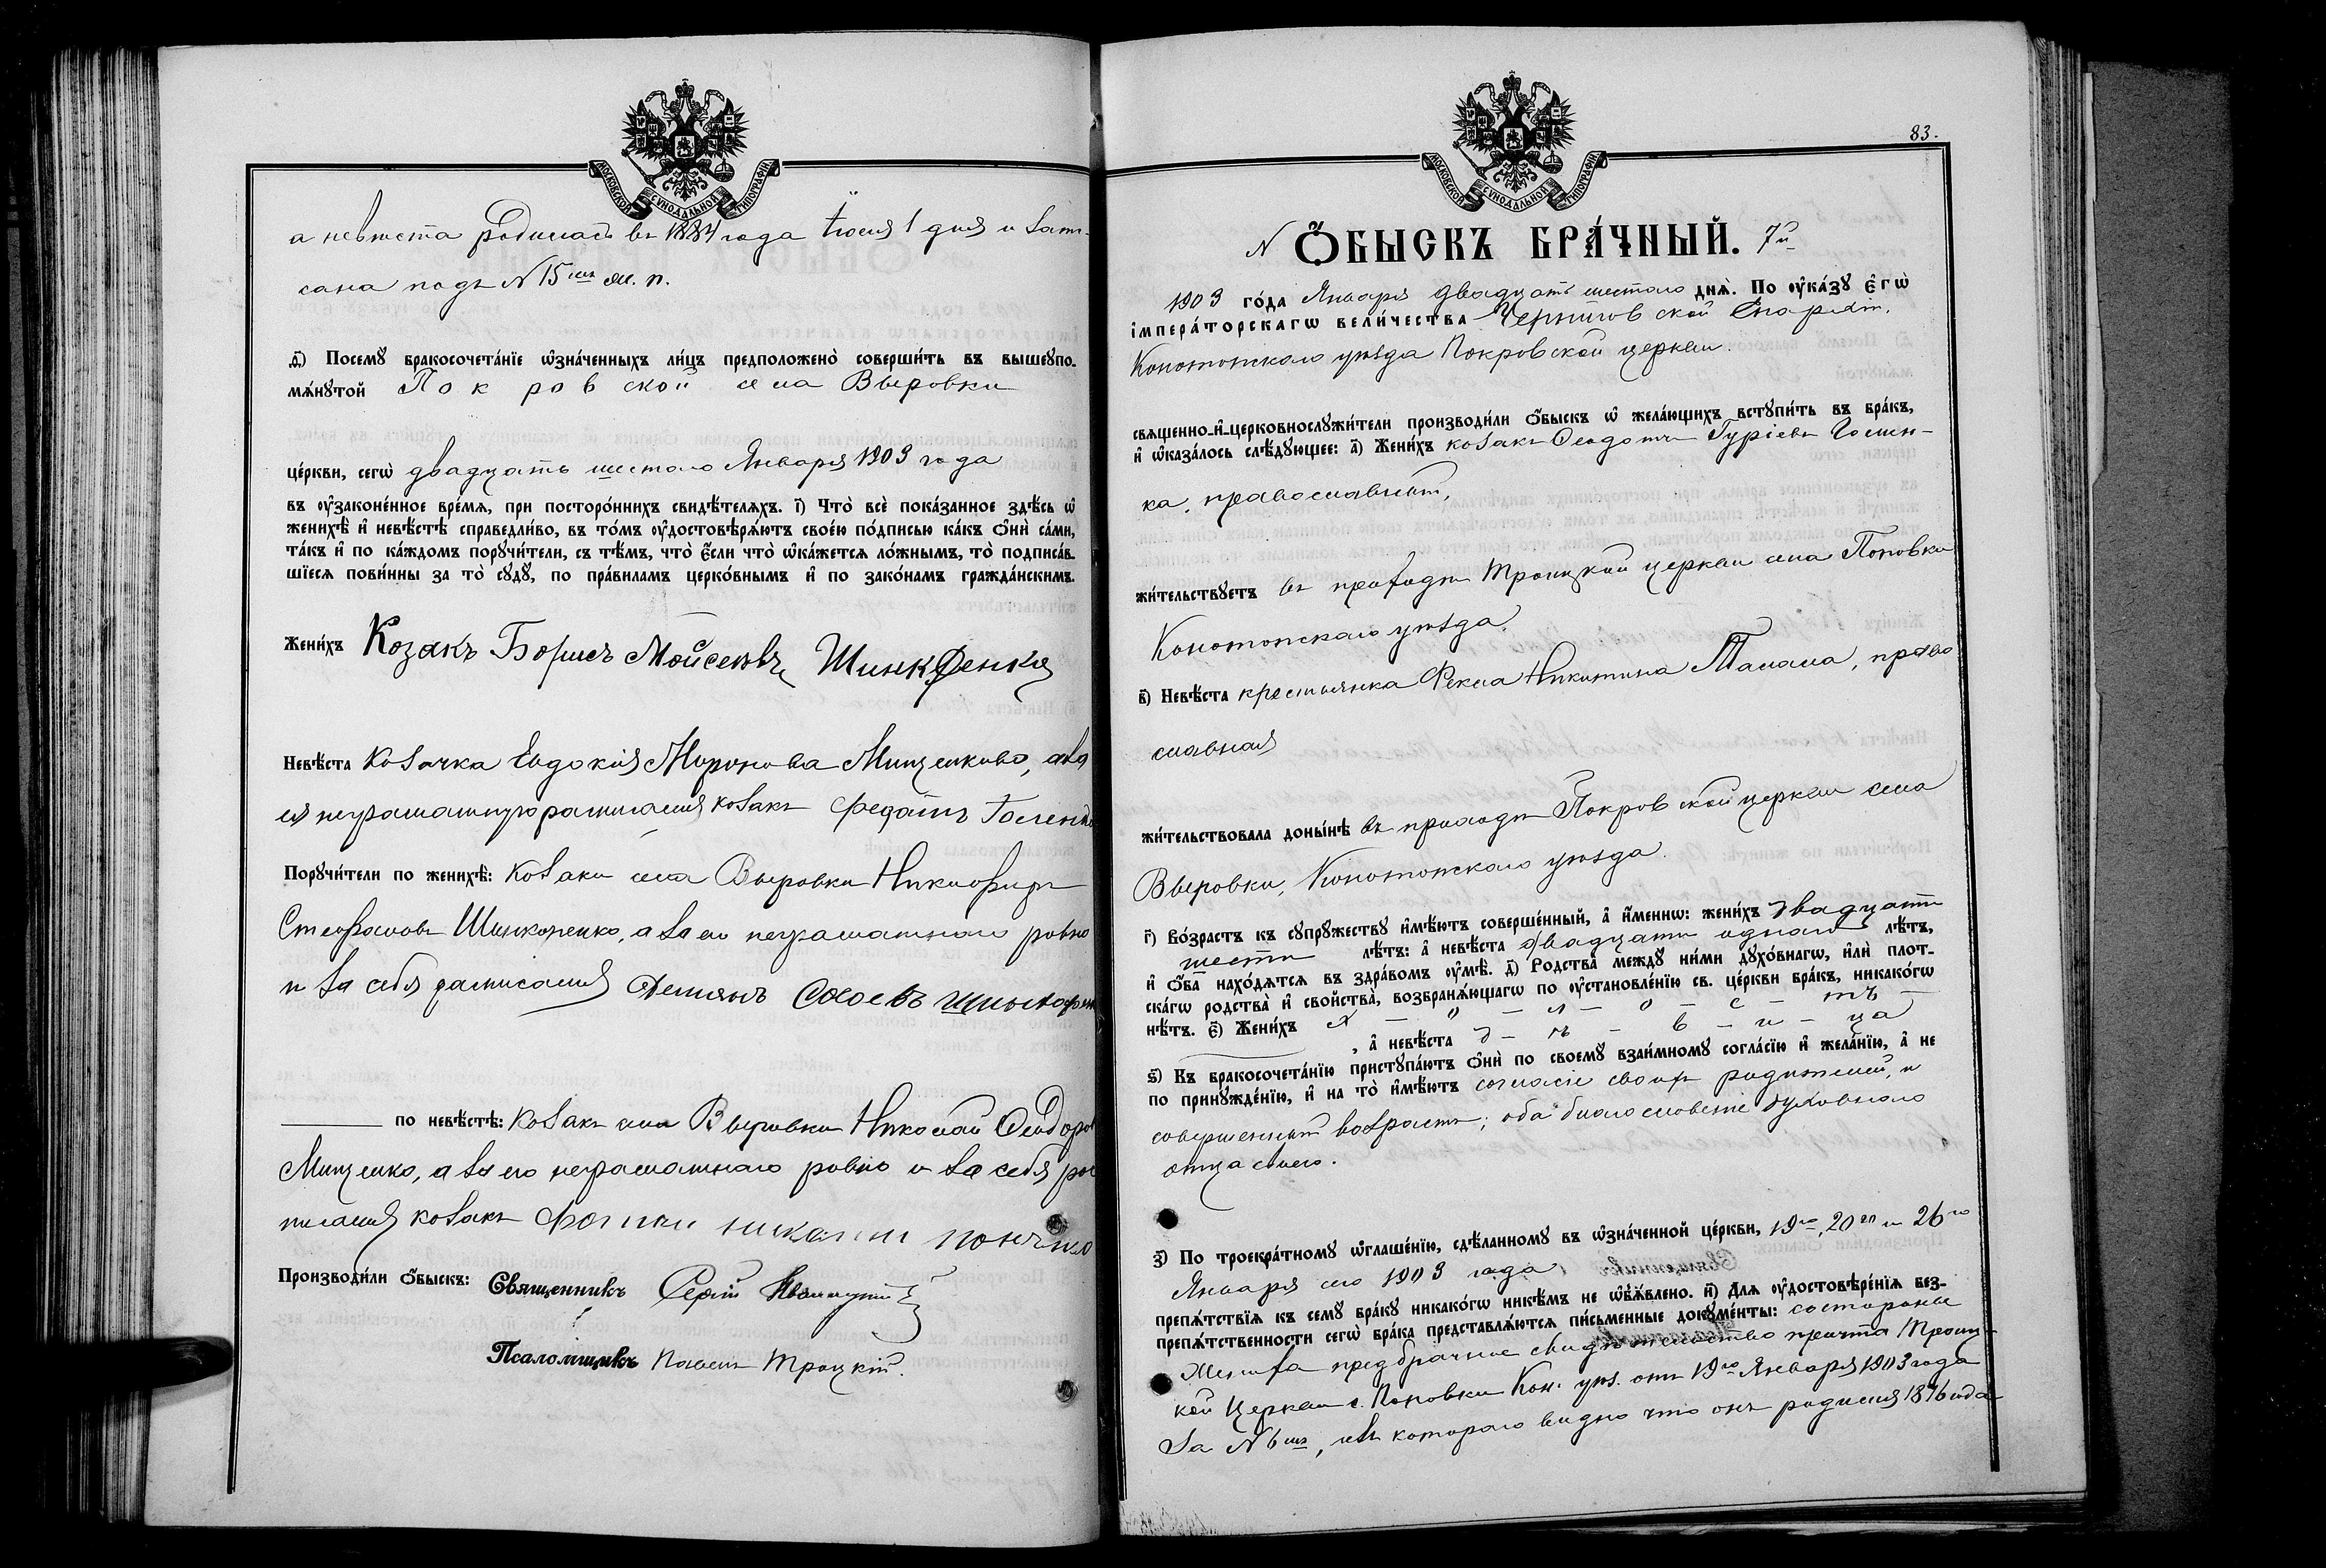 МОСКОВСКОЙ СѴНОДАЛЬНОЙ ТИПОГРАФІИ
а невѣста родилась въ 1884 года Іюля 1 дня и запи-
сана подъ N 15мъ ж. п.
д҃і) Посемꙋ бракосочета́нїе ѡ҆зна́ченныхъ ли́цъ предположено̀ соверши́ть въ вышеꙋпо-
мѧ́нꙋтой Покровской села Выровки
це́ркви, сегѡ̀ двадцать шестаго Января 1903 года
въ ᲂу҆законе́нное вре́мѧ, при посторо́ннихъ свидѣ́телѧхъ. і҃) Что̀ всѐ пока́занное здѣ́сь ѡ҆
женихѣ̀ и҆ невѣ́стѣ справедли́во, въ то́мъ ᲂу҆достовѣрѧ́ютъ свое́ю по́дписью ка́къ ѻ҆нѝ са́ми,
та́къ и҆ по ка́ждомъ порꙋчи́тели, съ тѣ́мъ, что̀ є҆́сли что̀ ѡ҆ка́жетсѧ ло́жнымъ, то̀ подписа́в-
шїесѧ пови́нны за то̀ сꙋдꙋ̀, по пра́виламъ церко́внымъ и҆ по зако́намъ гражда́нскимъ.
Жени́хъ Козакъ Борисъ Мойсеевъ
Невѣ́ста Козачка Евдокія Миронова Мищенкова, а за
ея неграмотную росписался козакъ Федотъ
Порꙋчи́тели по женихѣ̀: Козаки села Выровки Никифоръ
Стефановъ Шинкаренко, а за его неграмотнаго ровно
и за себя росписался Демянъ
по невѣ́стѣ: Козакъ села Выровки Николай Феодоров
Мищенко, а за его неграмотнаго ровно и за себя рос
писался козакъ
Производи́ли ѻ҆́быскъ: Священникъ Сергій
Псаломщикъ Павелъ Троцкій.
83.
МОСКОВСКОЙ СѴНОДАЛЬНОЙ ТИПОГРАФІИ
N Ѻ҆́БЫСКЪ БРА́ЧНЫЙ. 7й
1903 го́да Января двадцать шестаго днѧ̀. По ᲂу҆ка́зꙋ є҆гѡ̀
і҆мпера́торскагѡ вели́чества Черниговской Епархіи,
Конотопскаго уѣзда Покровской церкви.
свѧщенно-и҆-церковнослꙋжи́тели производи́ли ѻ҆́быскъ ѡ҆ жела́ющихъ встꙋпи́ть въ бра́къ,
и҆ ѡ҆каза́лось слѣ́дꙋющее: а҃) Жени́хъ козакъ Феодотъ Гуріевъ Голен-
ка, православный,
жи́тельствꙋетъ въ приходѣ Троицкой церкви села Поповки
Конотопскаго уѣзда.
в҃) Невѣ́ста крестьянка Фекла Никитина, право
славная
жи́тельствовала доны́нѣ въ приходѣ Покровской церкви села
Выровки, Конотопскаго уѣзда.
г҃) Во́зрастъ къ сꙋпрꙋ́жествꙋ и҆мѣ́ютъ соверше́нный, а҆ и҆́менно: жени́хъ двадцати
шести лѣ́тъ: а҆ невѣ́ста двадцати одного лѣ́тъ,
и҆ ѻ҆́ба нахо́дѧтсѧ въ здра́вомъ ᲂу҆мѣ̀. д҃) Родства̀ междꙋ ни́ми дꙋхо́внагѡ, и҆лѝ плот-
ска́гѡ родства̀ и҆ сво́йства̀, возбранѧ́ющагѡ по ᲂу҆становле́нїю св. це́ркви бра́къ, никако́гѡ
нѣ́тъ. є҃) Жени́хъ х – о – л – о – с – тъ –
, а҆ невѣ́ста д – ѣ – в – и – ца
ѕ҃) Къ бракосочета́нїю пристꙋпа́ютъ ѻ҆нѝ по своемꙋ̀ взаи́мномꙋ согла́сїю и҆ жела́нїю, а҆ не
по принꙋжде́нїю, и҆ на то̀ и҆мѣ́ютъ согласіе своихъ родителей, и
совершенный возрастъ; оба благословеніе духовнаго
отца своего.
з҃) По троекра́тномꙋ ѡ҆глаше́нїю, сдѣ́ланномꙋ въ ѡ҆зна́ченной це́ркви, 19го, 20го и 26го
Января сего 1903 года
препѧ́тствїѧ къ семꙋ̀ бра́кꙋ никако́гѡ никѣ́мъ не ѡ҆б̾ѧ́влено. и҃) Длѧ ᲂу҆достовѣре́нїѧ без-
препѧ́тственности сегѡ̀ бра́ка представлѧ́ютсѧ пи́сьменные докꙋме́нты: со стороны
Жениха предбрачное свидѣтельство причта Троиц-
кой Церкви с. Поповки Кон. уѣз. отъ 19го Января 1903 года
за N 6мъ, изъ котораго видно что онъ родился 1876 года